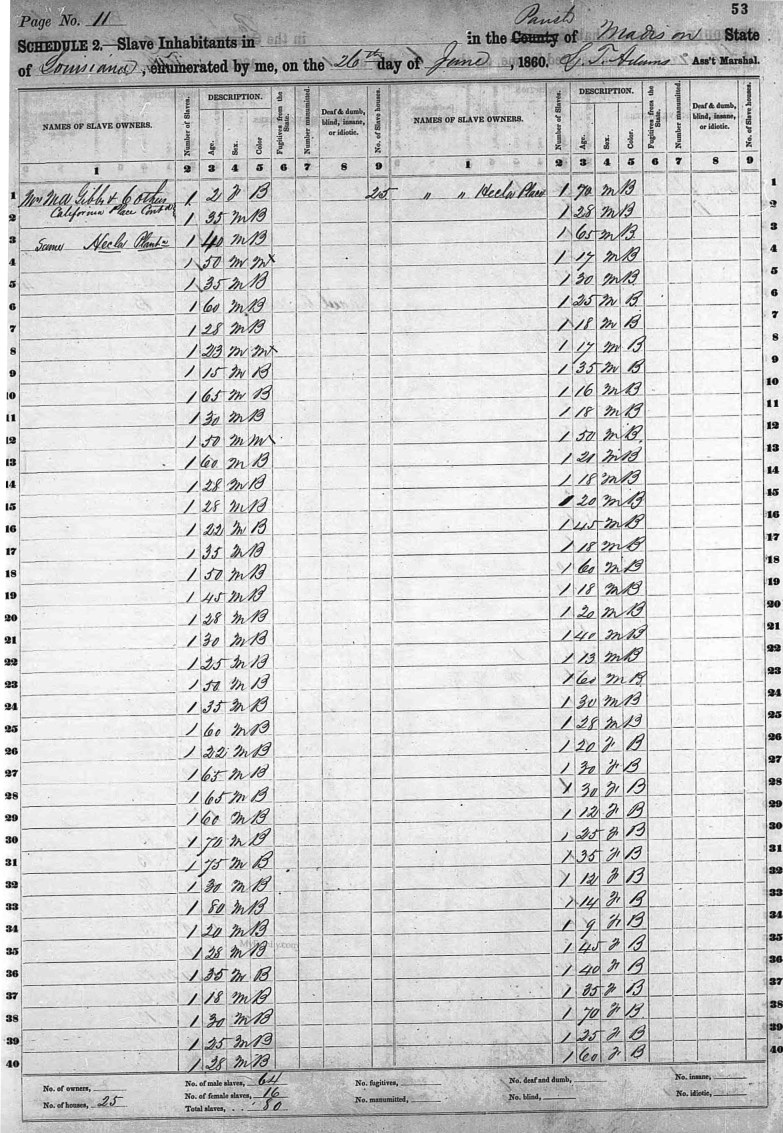 53
Page No. 11
SCHEDULE 2.—Slave Inhabitants in in the County Parish of Madison State
of Louisiana, enumerated by me, on the 26th day of June, 1860. Adams Ass't Marshal.
NAMES OF SLAVE OWNERS. Number of Slaves. DESCRIPTION. Age. Sex. Color Fugitives from the State. Number manumitted. Deaf & dumb, blind, insane, or idiotic. No. of Slave houses. NAMES OF SLAVE OWNERS. Number of Slaves. DESCRIPTION. Age. Sex. Color. Fugitives from the State. Number manumitted. Deaf & dumb, blind, insane, or idiotic. No. of Slave houses.
1 2 3 4 5 6 7 8 9 1 2 3 4 5 6 7 8 9
1 Mrs Gibbs & 1 2 F B 25 " " Hecla Place 1 70 M B 1
California Place
2 1 35 M B 1 28 M B 2
3 Same Hecla 1 40 M B 1 65 M B 3
4 1 50 M M 1 17 M B 4
5 1 35 M B 1 30 M B 5
6 1 60 M B 1 25 M B 6
7 1 28 M B 1 18 M B 7
8 1 23 M M 1 17 M B 8
9 1 15 M B 1 35 M B 9
10 1 65 M B 1 16 M B 10
11 1 30 M B 1 18 M B 11
12 1 50 M M 1 50 M B 12
13 1 60 M B 1 21 M B 13
14 1 28 M B 1 18 M B 14
15 1 28 M B 1 20 M B 15
16 1 22 M B 1 45 M B 16
17 1 35 M B 1 18 M B 17
18 1 50 M B 1 60 M B 18
19 1 45 M B 1 18 M B 19
20 1 28 M B 1 20 M B 20
21 1 30 M B 1 40 M B 21
22 1 25 M B 1 13 M B 22
23 1 50 M B 1 60 M B 23
24 1 35 M B 1 30 M B 24
25 1 60 M B 1 28 M B 25
26 1 22 M B 1 20 F B 26
27 1 65 M B 1 30 F B 27
28 1 65 M B 1 30 F B 28
29 1 60 M B 1 12 F B 29
30 1 70 M B 1 25 F B 30
31 1 75 M B 1 35 F B 31
32 1 30 M B 1 12 F B 32
33 1 80 M B 1 14 F B 33
34 1 20 M B 1 9 F B 34
35 1 28 M B 1 45 F B 35
36 1 35 M B 1 40 F B 36
37 1 18 M B 1 35 F B 37
38 1 30 M B 1 70 F B 38
39 1 25 M B 1 25 F B 39
40 1 28 M B 1 60 F B 40
No. of owners, No. of male slaves, 64 No. fugitives, No. deaf and dumb, No. insane,
No. of houses, 25 No. of female slaves, 16 No. manumitted, No. blind, No. idiotic,
Total slaves, 80